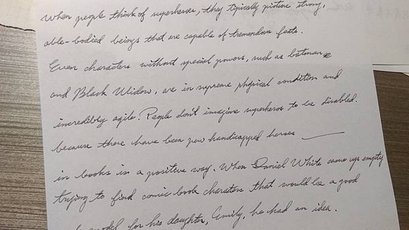 When people think of superheroes, they typically picture strong,
able-bodied beings that are capable of tremendous feats.
Even characters without special powers, such as batman
and Black Widow, are in supreme physical condition and
incredibly agile. People don't imagine superheroes to be disabled.
because there have been few handicapped heroes
in books in a positive way. When Daniel White came up empty
trying to find comic book characters that would be a good
model for his daughter, Emily, he had an idea.